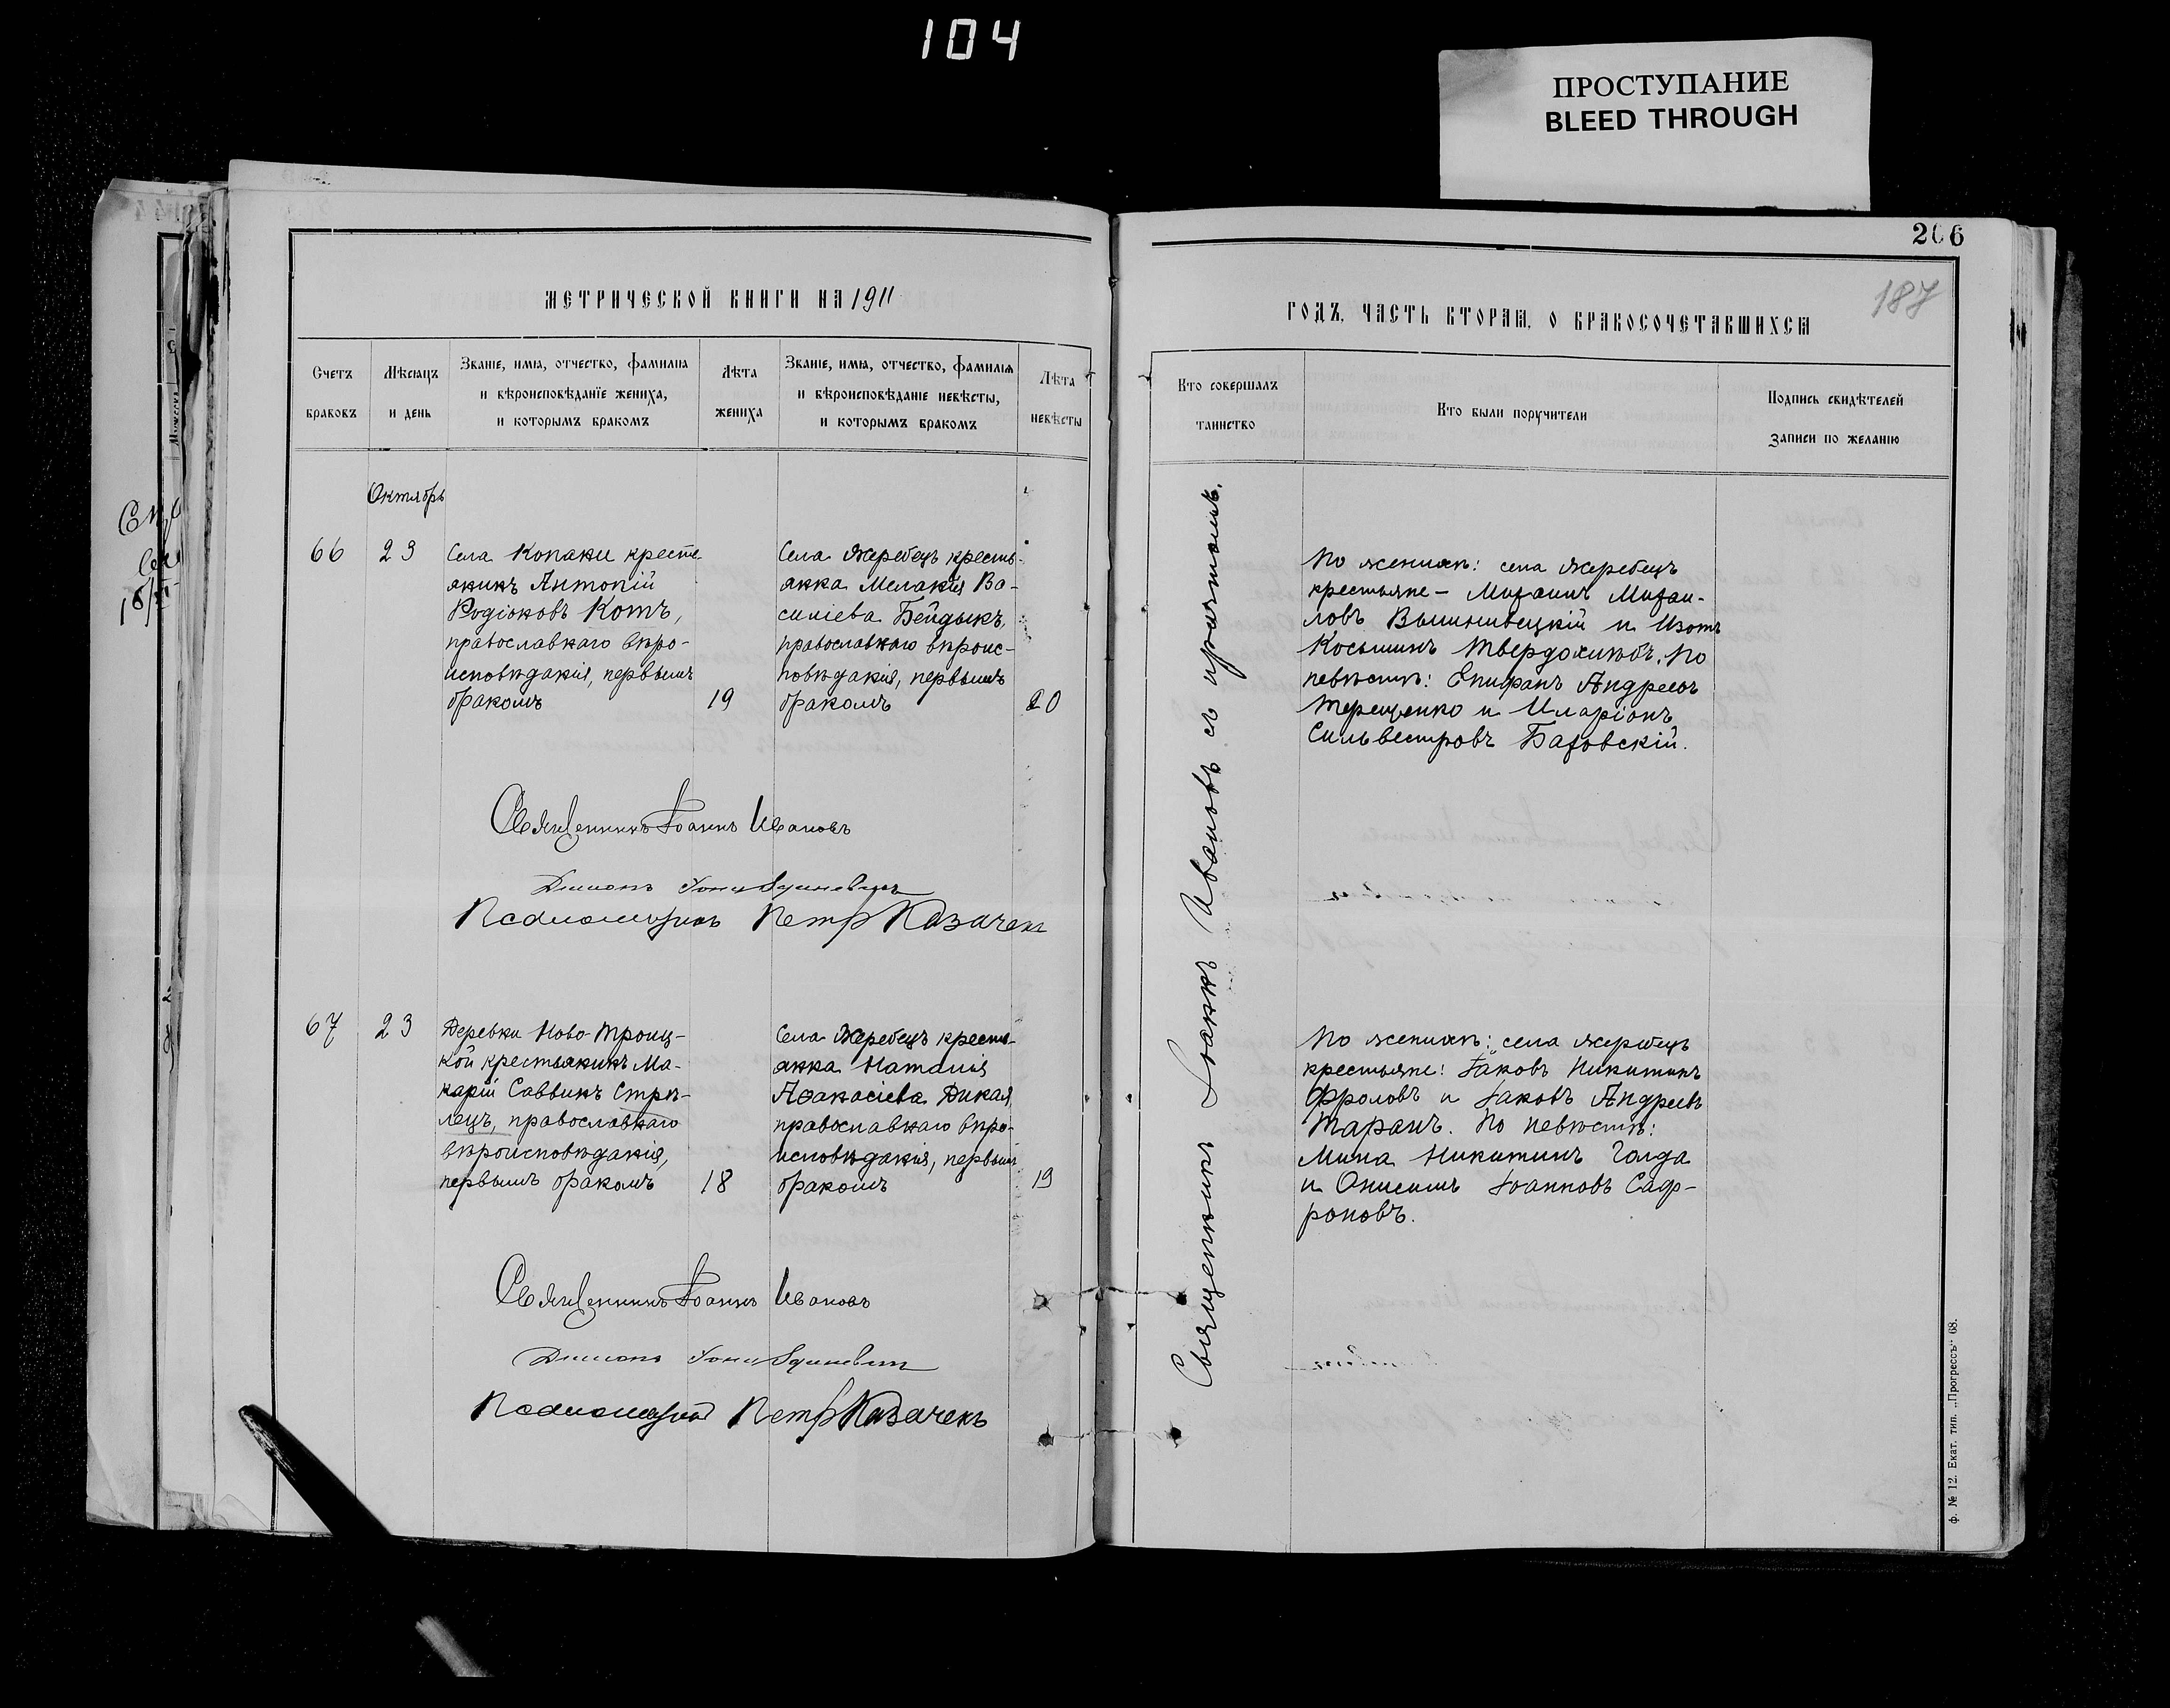 104
ПРОСТУПАНИЕ
BLEED THROUGH
206
187
МЕТРИЧЕСКОЙ КНИГИ НА 1911
ГОДЪ, ЧАСТЬ ВТОРАЯ, О БРАКОСОЧЕТАВШИХСЯ
Счетъ
браковъ
Мѣсяцъ
и день
Званіе, имя, отчество, фамилія
и вѣроисповѣданіе жениха,
и которымъ бракомъ
Лѣта
жениха
Званіе, имя, отчество, фамилія
и вѣроисповѣданіе невѣсты,
и которымъ бракомъ
Лѣта
невѣсты
Кто совершалъ
таинство
Кто были поручители
Подпись свидѣтелей
записи по желанію
Октябрь
66
23
Села Копани кресть-
янинъ Антоній
Родіоновъ Котъ,
православнаго вѣро-
исповѣданія, первымъ
бракомъ
19
Села Жеребецъ кресть-
янка Меланія Ва-
силіева Бейдыкъ,
православнаго вѣроис-
повѣданія, первымъ
бракомъ
20
Священникъ Іоаннъ Ивановъ съ причтомъ.
По женихѣ: села Жеребецъ
крестьяне - Михаилъ Михаи-
ловъ Вышнивецкій и Изотъ
Косьминъ Твердохлѣбъ. По
невѣстѣ: Епифанъ Андреевъ
Терещенко и Иларіонъ
Сильвестровъ Баховскій.
Священникъ Іоаннъ Ивановъ
Діаконъ
Псаломщикъ Петръ Казачекъ
67
23
Деревни Ново-Троиц-
кой крестьянинъ Ма-
карій Саввинъ Стрѣ-
лецъ, православнаго
вѣроисповѣданія,
первымъ бракомъ
18
Села Жеребецъ кресть-
янка Наталія
Аѳанасіева Дикая,
православнаго вѣро-
исповѣданія, первымъ
бракомъ
19
По женихѣ: села Жеребецъ
крестьяне: Іаковъ Никитинъ
Фроловъ и Іаковъ Андреевъ
Таранъ. По невѣстѣ:
Мина Никитинъ Голда
и Онисимъ Іоанновъ Саф-
роновъ.
Священникъ Іоаннъ Ивановъ
Діаконъ
Псаломщикъ Петръ Казачекъ
ф. № 12. Екат. тип. „Прогрессъ" 68.